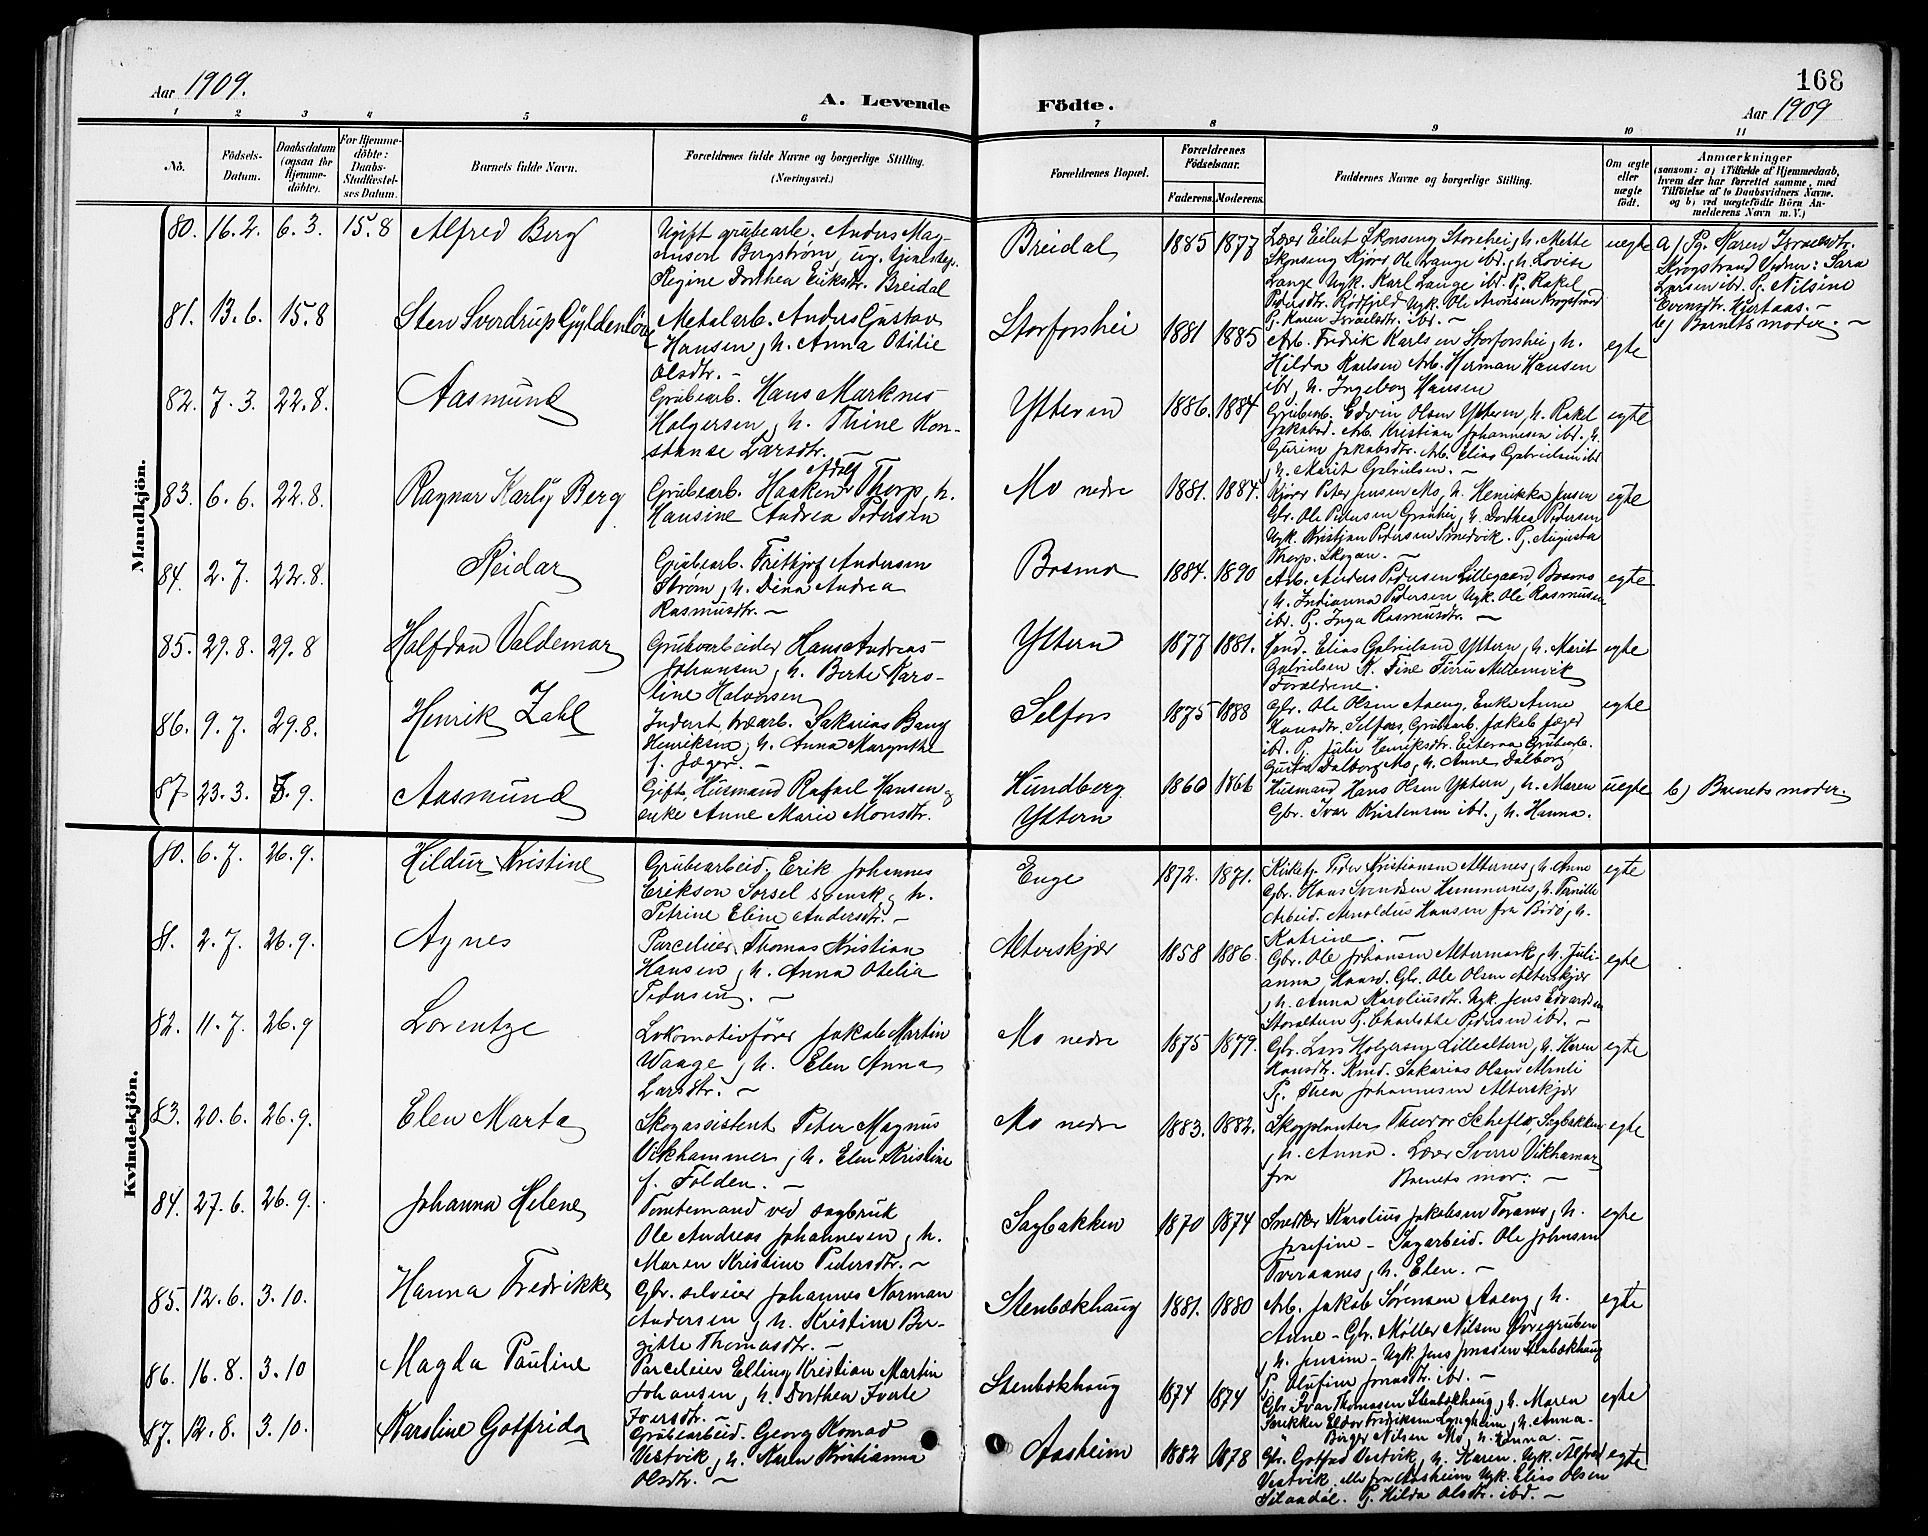 Aar 1909.
A. Levende Födte.
168
Aar 1909
1 2 3 4 5 6 7 8 9 10 11
No.
Födsels-Datum.
Daabsdatum (ogsaa for Hjemme-döbte).
For Hjemme-döbte: Daabs-Stadfæstel-ses Datum.
Barnets fulde Navn.
Forældrenes fulde Navne og borgerlige Stilling. (Næringsvei.)
Forældrenes Bopæl.
Forældrenes Födselsaar.
Faderens. Moderens.
Faddernes Navne og borgerlige Stilling.
Om ægte eller uægte födt.
Anmærkninger
(saasom: a) i Tilfælde af Hjemmedaab, hvem der har forrettet samme, med Tilföielse af to Daabsvidners Navne. og b) ved uægtefödte Börn An-melderens Navn m. V.)
Mandkjön.
80. 16.2. 6.3. 15.8 Alfred Berg
Ugift grubearb. Anders Mag-
nuson Bergstrøm, ug. tjenestep.
Regine Dorthea Eriksdtr. Breidal
Breidal 1885 1877
Lærer Eilert Skonseng Storehei, h. Mette
Skonseng Kjører Ole Lange ibd, h. Lovise
Lange Ugk. Karl Lange ibd. Pg. Rakel
Pedersdtr. Rødfjeld Ugk. Ole Aronsen Krogstrand
Pg. Karen Israelsdtr. ibd. –
uegte
a) Pg. Maren Israelsdtr.
Krogstrand Vidner: Sara
Larsen ibd. Pg. Nilsine
Evensdtr. Hjertaas. –
b) Barnets moder. –
81. 13.6. 15.8 Sten Sverdrup Gyldenløve
Metalarb. Anders Gustav
Hansen, h. Anna Otilie
Olsdtr. –
Storforshei 1881 1885
Arb. Fredrik Karlsen Storforshei, h.
Hilda Karlsen Arb. Herman Hansen
ibd, h. Ingeborg Hansen
egte
82. 7.3. 22.8. Aasmund
Grubearb. Hans Marknes
Holgersen, h. Trine Kon-
stanse Larsdtr. –
Ytteren 1886. 1884
Grubearb. Edvin Olsen Ytteren, h. Rakel
Jakobsd. Arb. Kristian Johannesen ibd. h.
Gurine Jakobsdtr. Arb. Elias Gabrielsen ibd
, h. Marit Gabrielsen. –
egte
83. 6.6. 22.8. Ragnar Karly Berg
Grubearb. Haaken Adolf Thorp, h.
Hansine Andrea Pedersen
Mo nedre 1881. 1884.
Kjører Peter Jensen Mo, h. Henrikka Jensen
Gbr. Ole Pedersen Grønhei, h. Dorthea Pedersen
Ugk. Kristjan Pedersen Smedvik. Pg. Augusta
Thorp. Skogan. –
egte
84. 2.7. 22.8. Reidar
Grubearb. Fritjof Andersen
Strøm, h. Dina Andrea
Rasmusdtr. –
Bosmo 1884. 1890
Arb. Anders Pedersen Lillegaard, Bosmo
, h. Indianna Pedersen Ugk. Ole Rasmussen
ibd. Pg. Inga Rasmusdtr. –
egte
85. 29.8. 29.8 Halfdan Valdemar
Grubearbeider Hans Andreas
Johansen, h. Berte Karo-
line Halvorsen
Yttern 1877 1881.
Elias Gabrielsen Yttern, h. Marit
Gabrielsen K. Fine
Forældrene.
egte
86. 9.7. 29.8. Henrik Zahl
Inderst, træarb. Sakarias Bang
Henriksen, h. Anna Margrethe
f. Jæger. –
Selfors 1875 1888
Gbr. Ole Olsen Aaeng, Enke Anne
Hansdtr. Selfors, Grubearb. Jakob Jæger
ibd. Pg. Julie Henriksdtr. Grubearb.
Gustav Dalborg Mo, h. Anne Dalborg
egte
87 23.3. 5.9. Aasmund
Gift, Husmand Rafael Hansen og
enke Anne Marie Monsdtr.
Hundberg
Yttern
1860 1866
Husmand Hans Olsen Yttern, h. Maren
Gbr. Ivar Kristensen ibd., h. Hanna.
uegte
b) Barnets moder.
Kvindekjön.
80. 6.7. 26.9. Hildur Kristine
Grubearbeid. Erik Johannes
Erikson Sorsel svensk, h.
Petrine Eline Andersdtr. –
Enge 1872. 1871.
Kirket. Peder Kristiansen Alternes, h. Anne
Gbr. Hans Svendsen Hemmernes, h. Pernille
Arbeid. Arnoldus Hansen fra Bodø, h.
Katrine. –
egte
81. 2.7. 26.9. Agnes
Parceleier Thomas Kristian
Hansen, h. Anna Otelia
Pedersen. –
Alterskjær 1858 1886.
Gbr. Ole Johansen Altermark, h. Juli-
anna Hansd. Gbr. Ole Olsen Alterskjær
, h. Anna Karoliusdtr. Ugk. Jens Edvardsen
Storaltern Pg. Charlotte Pedersen ibd. –
egte
82. 11.7. 26.9 Lorentze
Lokomotivfører Jakob Martin
Waage, h. Elen Anna
Larsdtr. –
Mo nedre 1875 1879.
Gbr. Lars Holgersen Lillealtern, h. Karen
Hansdtr. Kmd. Sakarias Olsen Almli
Pg. Thea Johannesen Alterskjær
egte
83. 20.6. 26.9. Elen Marta
Skogassistent Peter Magnus
Vikhammer, h. Elen Kristine
f. Folden. –
Mo nedre 1883. 1882.
Skogplanter Theodor Scheflo, Sagbakken
, h. Anna. Lærer Sverre Vikhamar
fra Barnets mor. –
egte
84. 27.6. 26.9. Johanna Helene
Tomtemand ved sagbruk
Ole Andreas Johannesen, h.
Maren Kristine Pedersdtr. –
Sagbakken 1870 1874
Snedker Karolius Jakobsen Toranes, h.
Josefine – Sagarbeid. Ole Johnsen
Tveraanes, h. Elen. –
egte
85. 12.6. 3.10. Hanna Fredrikke
Gbr. selveier Johannes Norman
Andersen, h. Kristine Ber-
gitte Thomasdtr. –
Stenbækhaug 1881. 1880
Arb. Jakob Sørensen Aaeng, h.
Anne – Gbr. Møller Nilsen Øvregruben
, h. Jensine – Ugk. Jens Jonassen Stenbækhaug
P. Olufine Jonasdtr. ibd. –
egte
86. 16.8. 3.10 Magda Pauline
Parceleier Elling Kristian Martin
Johansen, h. Dorthea Iverte
Iversdtr. –
Stenbækhaug 1874 1874
Gbr. Ivar Thomassen Stenbækhaug, h. Maren
Snekker Eldor Fredriksen Lyngheim, h. Anna.
" Birger Nilsen Mo, h. Hanna. –
egte
87. 12.8. 3.10. Karoline Gotfrida
Grubearbeid. Georg Konrad
Vestvik, h. Karen Kristianna
Olsdtr. –
Aasheim 1882 1878
Gbr. Gotfred Vestvik, h. Karen. Ugk. Alfred
Vestvik, alle fra Aasheim Ugk. Elias Olsen
Pg. Hilda Olsdtr. ibd. –
egte